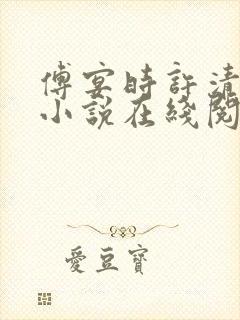 傅宴時許清
小說在綫閱
愛豆寶